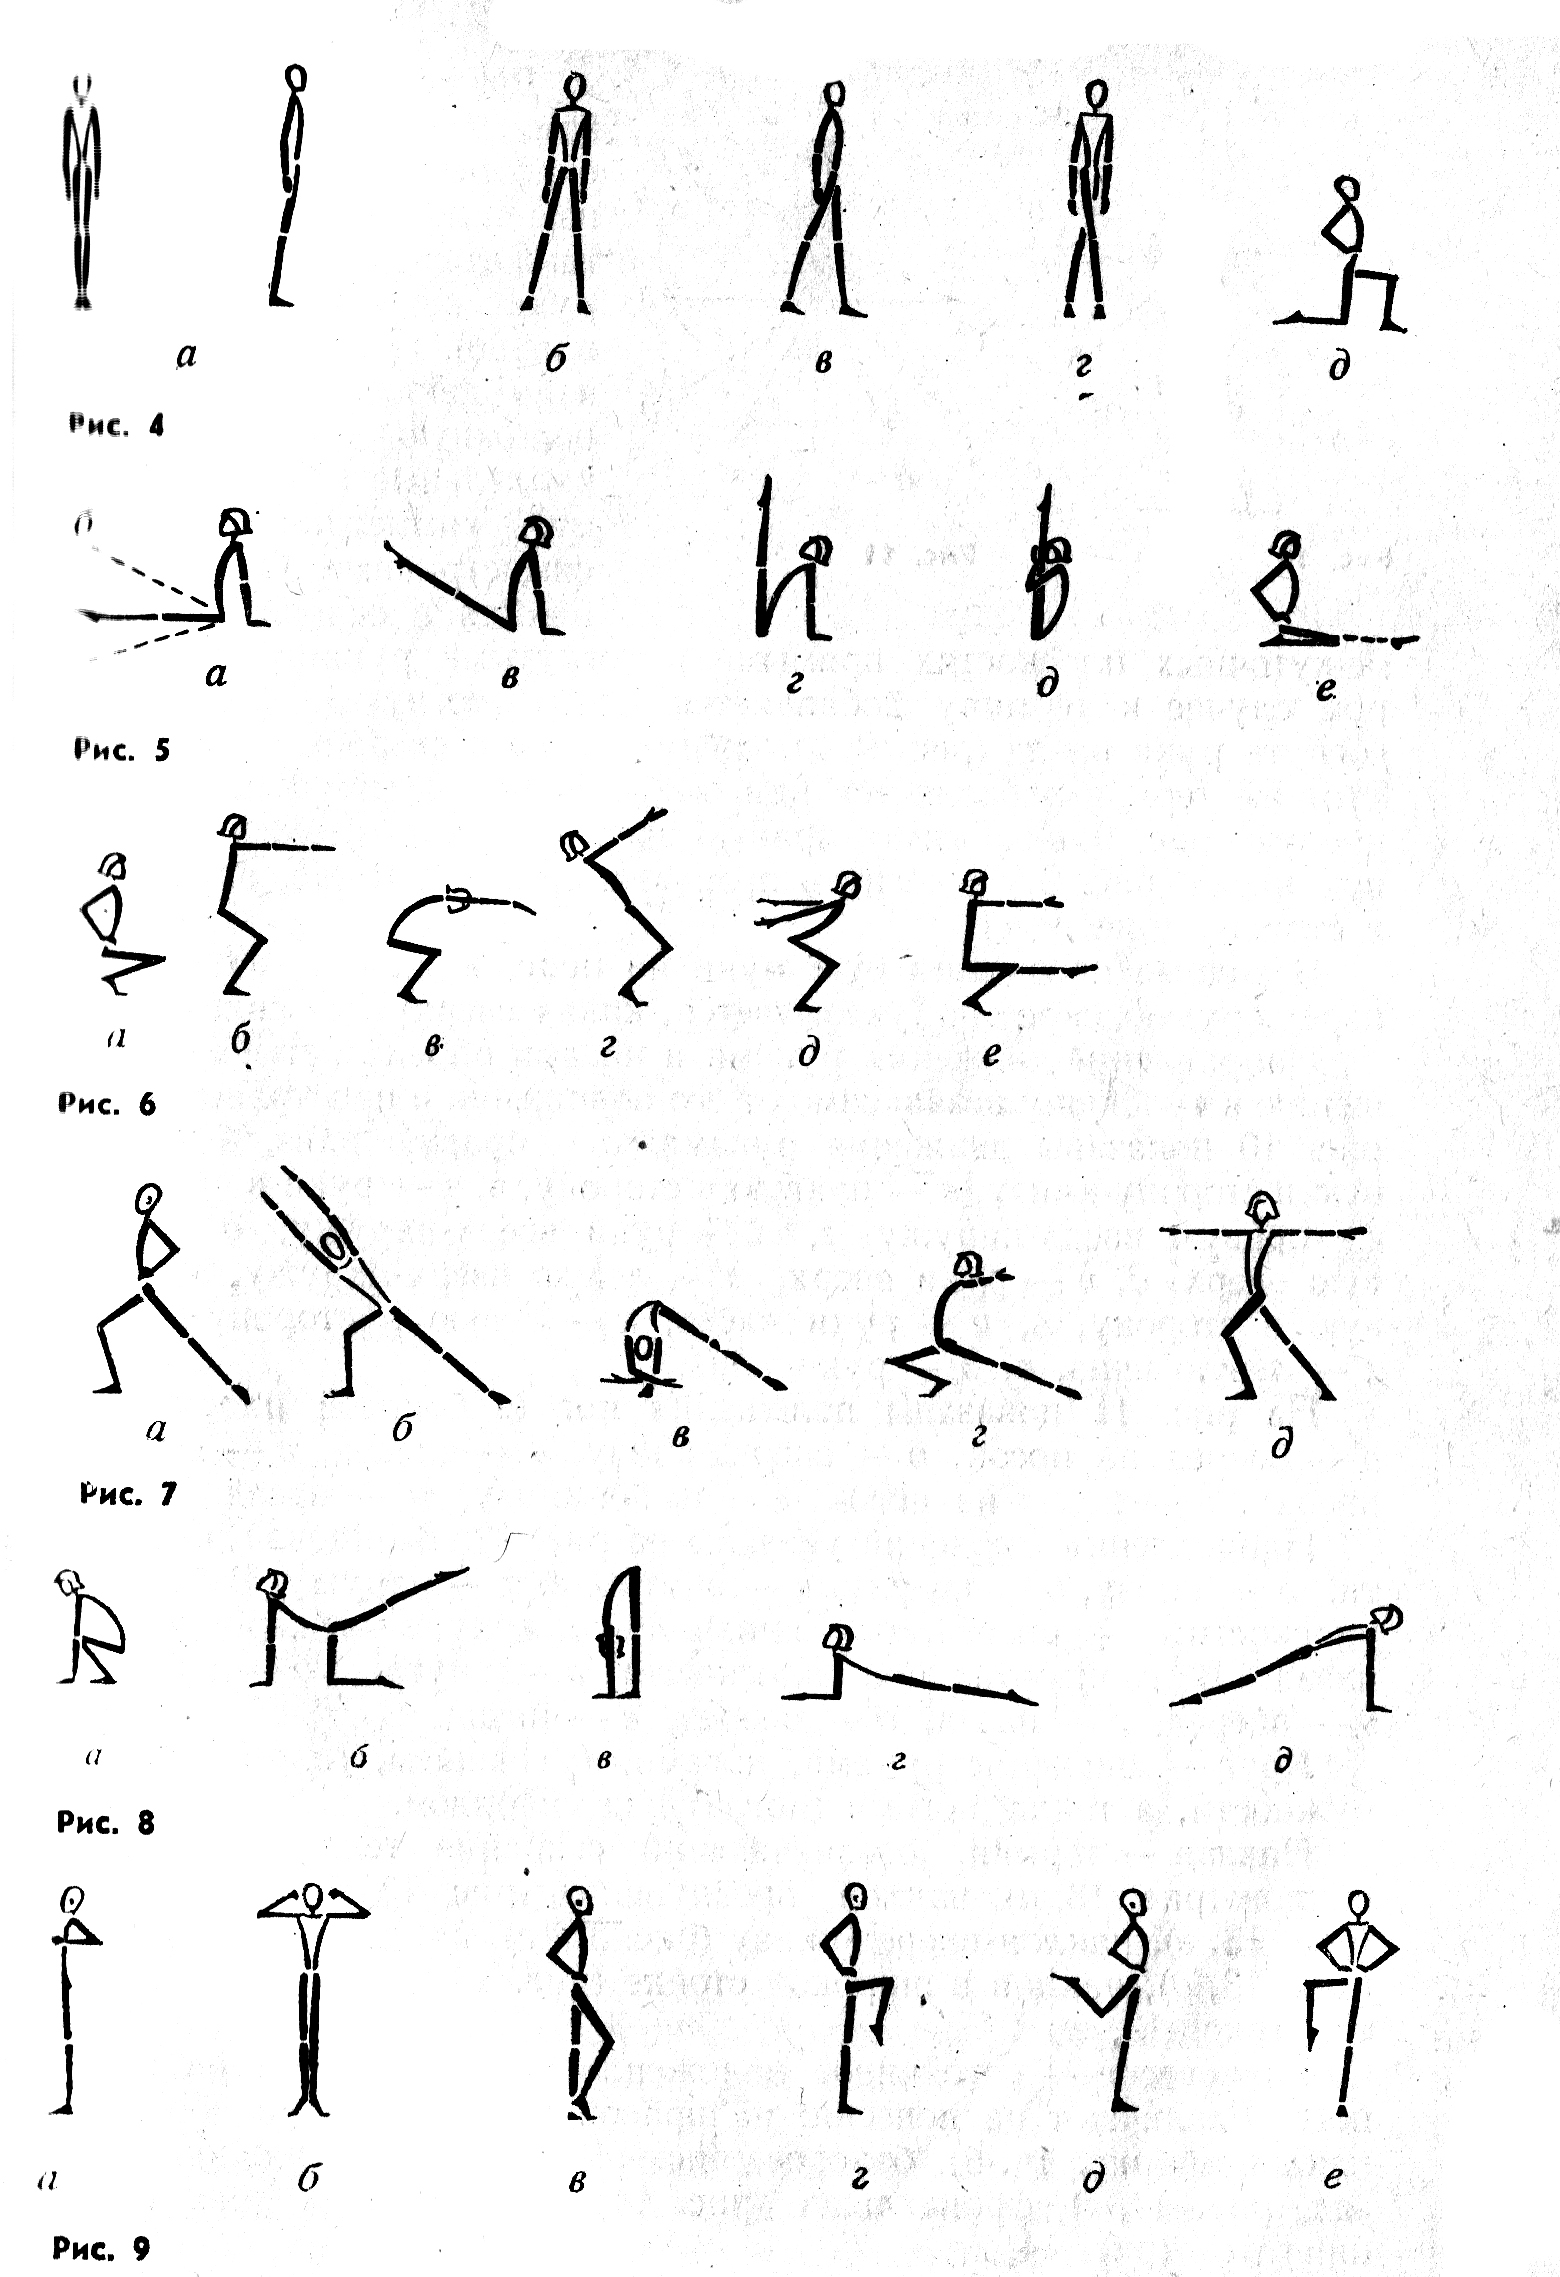 а б в г д
Рис. 4
б
а в г д е
Рис. 5
а б в г д е
Рис. 6
а б в г д
Рис. 7
а б в г д
Рис. 8
а б в г д е
Рис. 9